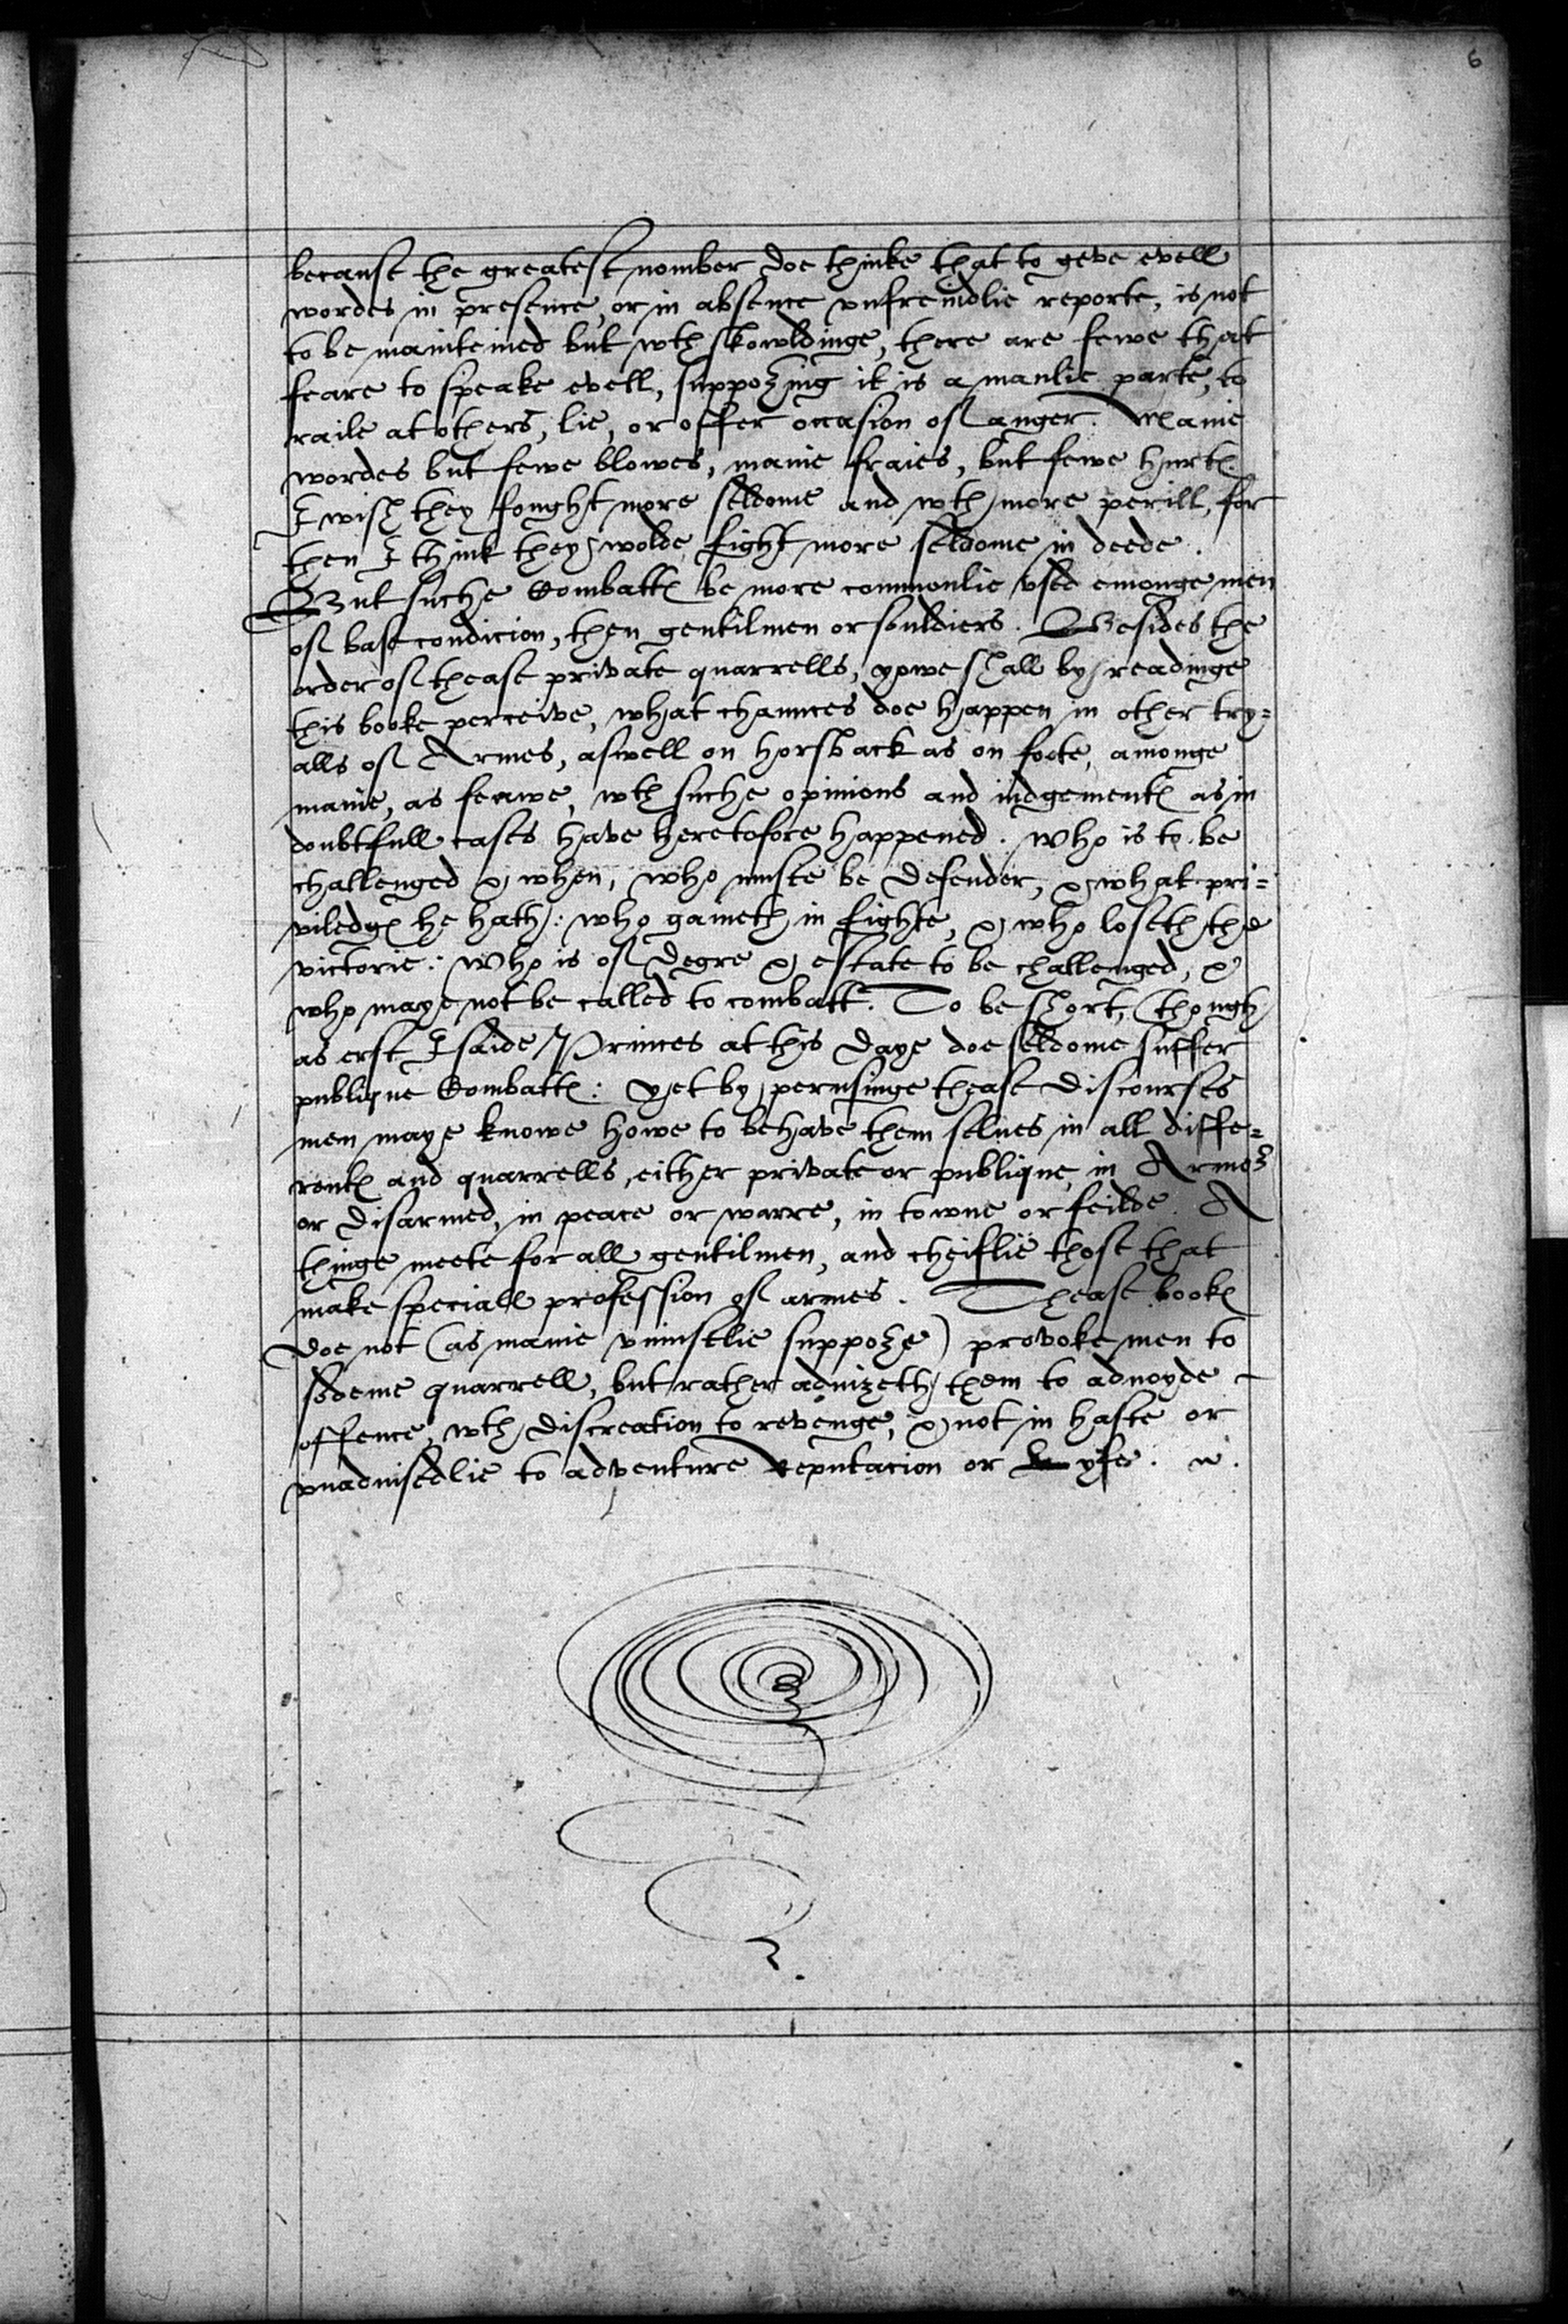 6
because the greatest nomber doe thinke that to geve evell
wordes in presence, or in absence vnfreindlie reporte, is not
to be mainteined but wth skowldinge, there are fewe that
feare to speake evell, suppozing it is a manlie parte, to
raile at others, lie, or offer occasion of anger. Manie
wordes but fewe blowes, manie fraies, but fewe hurtes.
I wish they fought more seldome and wth more perill, for
then I think they wolde fight more seldome in deede.
But suche Combattes be more commonlie vsed emonge men
of base condicion, then gentilmen or souldiers. Besides the
order of thease private quarrells, yowe shall by readinge
this booke perceive, what chaunces doe happen in other try=
alls of Armes, aswell on horsback as on foote, amonge
manie, as feawe, wth suche opinions and iudgementes as in
doubtfull cases have heretofore happened. Who is to be
challenged & when, who muste be defender, & what pri=
viledges he hath: who gaineth in fighte, & who loseth the
victorie: Who is of degre & estate to be challenged, &
who maye not be called to combatt. To be short, (though
as erst I saide) Princes at this daye doe seldome suffer
publique Combattes: yet by perusinge thease discourses
men maye knowe howe to behave them selues in all diffe=
rentes and quarrells, either private or publique, in Armez
or disarmed, in peace or warre, in towne or feilde. A
thinge meete for all gentilmen, and cheiflie those that
make speciall profession of armes. Thease bookes
doe not (as manie vniustlie suppoze) provoke men to
sodeine quarrell, but rather aduizeth them to aduoyde
offence, wth discreation to revenge, & not in haste or
vnaduisedlie to adventure Reputacion or Lyfe.